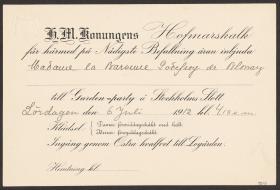 H. M. Konungens Hofmarskalk
får härmed på Nådigste Befallning äran inbjuda
Madame la Baronne Godefroy de Blonay
till Garden-party å Stockholms Slott
Lördagen den 6 Juli 1912 kl. 4.15 e.m.
Klädsel: Damer: förmiddagsdräkt med hatt.
Herrar: förmiddagsdräkt.
Ingång genom Östra hvalfvet till Logården.
Hemtning kl.